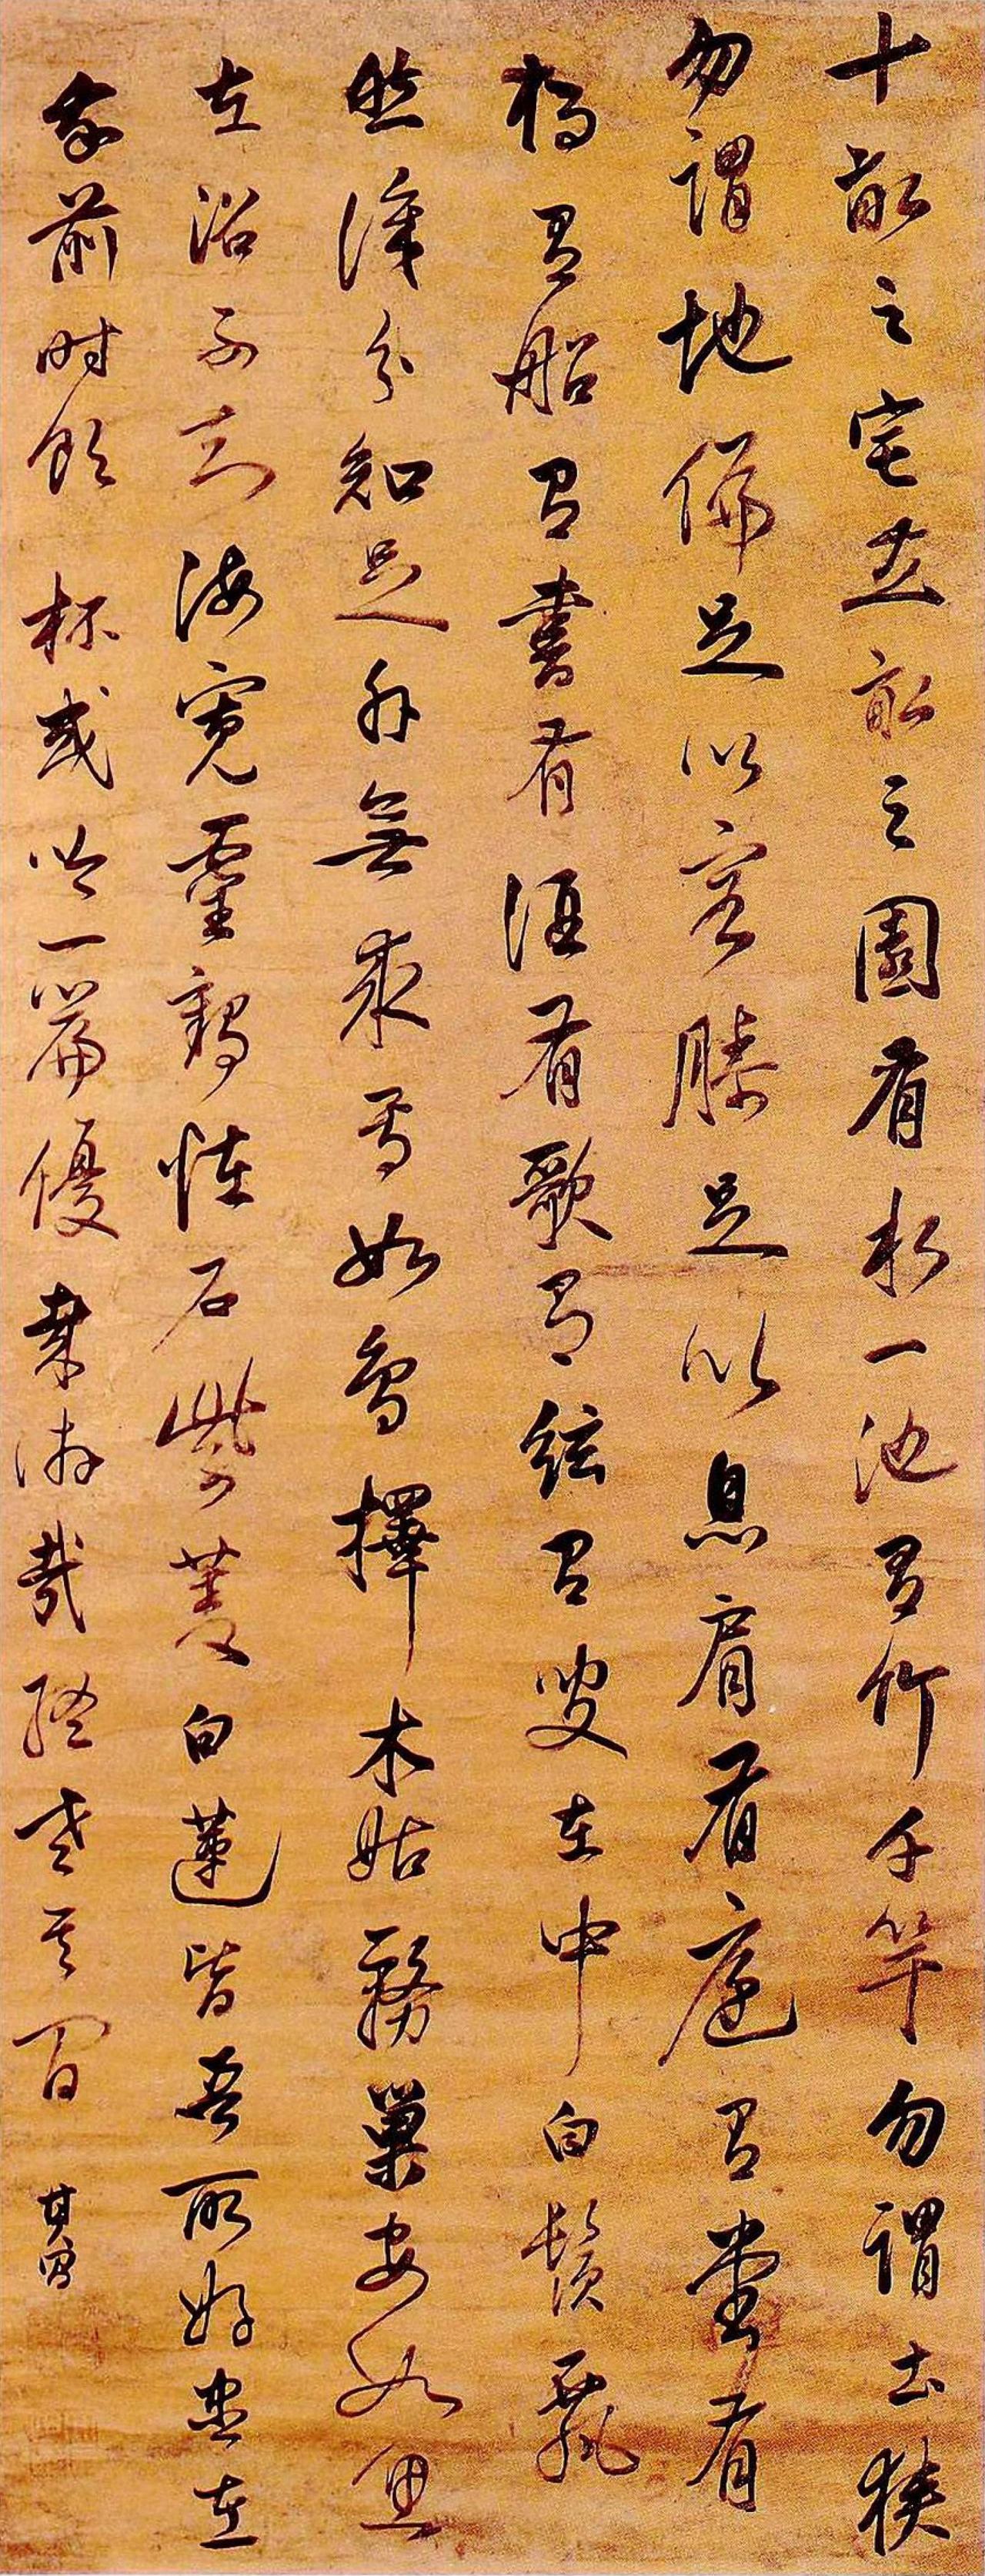 十畝之宅五畝之園有水一池有竹千竿勿謂土狹
勿謂地偏足以容膝足以息肩有庭有堂有
橋有船有書有酒有歌有弦有叟在中白鬚飄
然識分知足外無求焉如鳥擇木姑務巢安如魚
在沼不知海寬靈鶴怪石紫菱白蓮皆吾所好盡在
吾前時飲杯或吟一篇優哉游哉終老其間 其昌